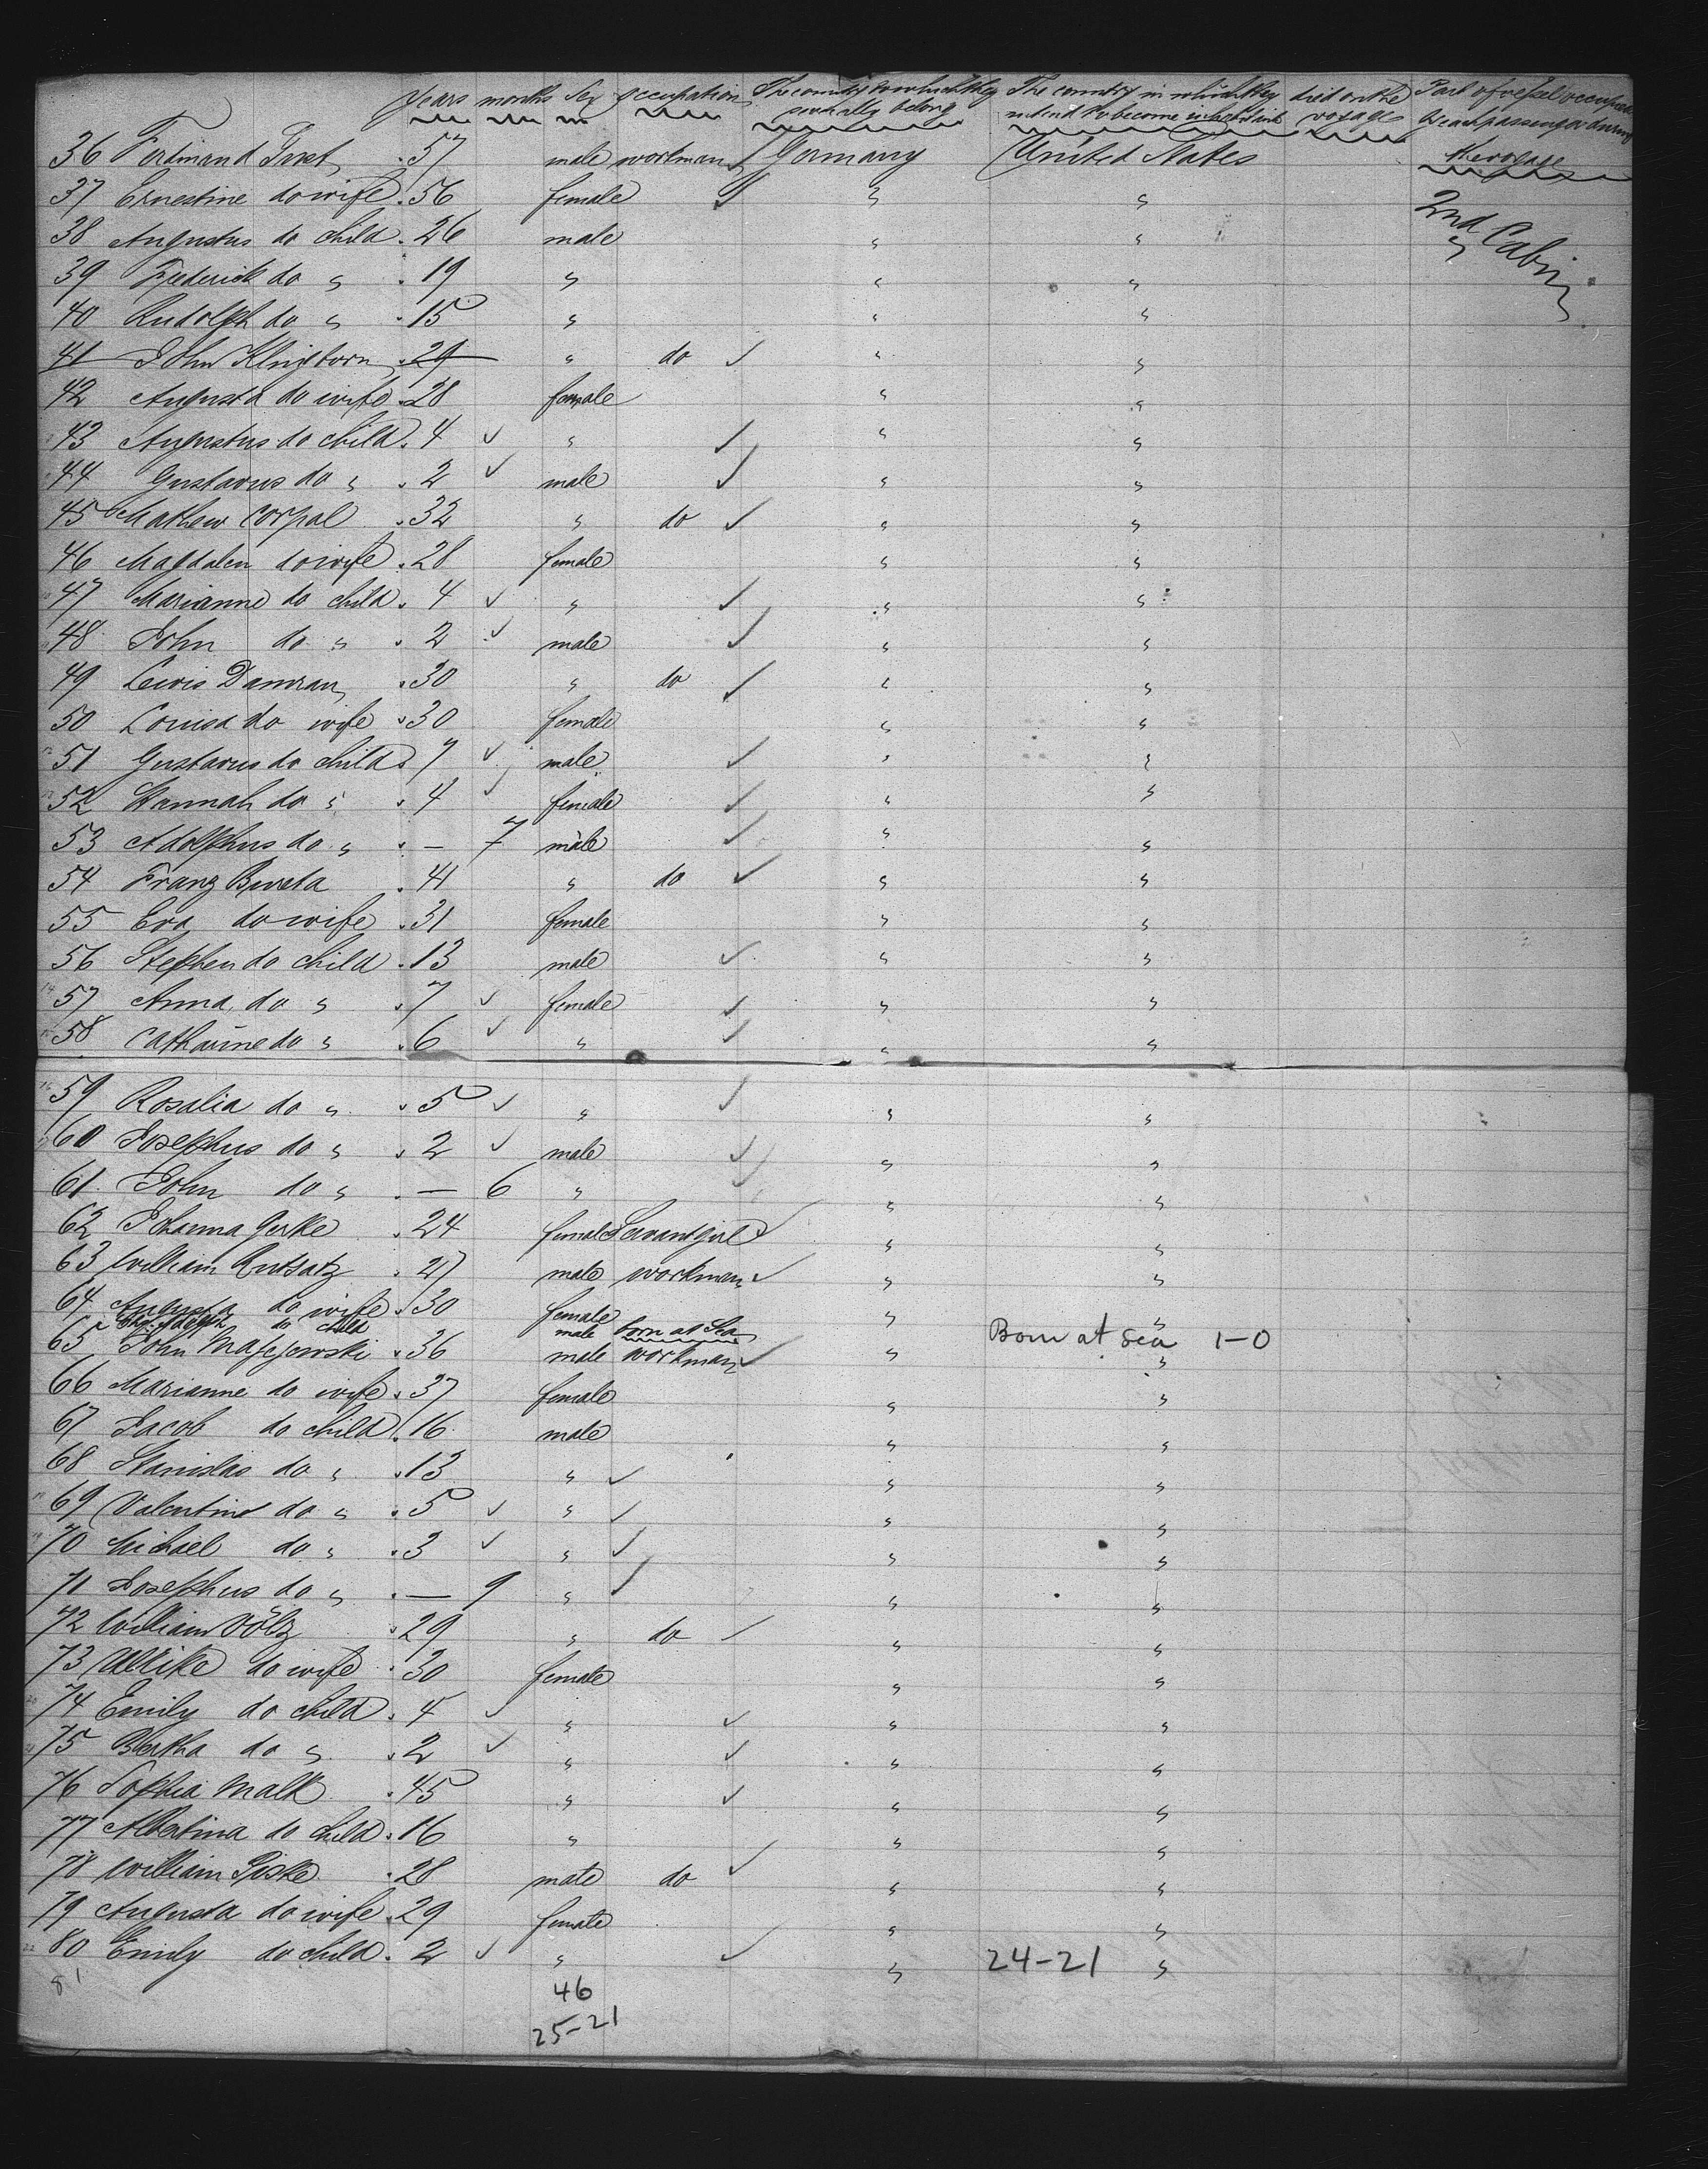 Years months Sex occupation The country to which they The country in which they died on the Part of vessel occupied
severally belong intend to become inhabitants voyage by each passenger during
36 Ferdinand 57 male workman Germany United States the voyage
37 Ernestine do wife 56 female " " 2nd Cabin
38 Augustus do child 26 male " " "
39 Frederick do " 19 " " "
40 Rudolph do " 15 " " "
41 John Klingborn 29 " do " "
42 Augusta do wife 28 female " "
43 Augustus do child 4 " " "
44 Gustavus do " 2 male " "
45 Mathew Corpal 32 " do " "
46 Magdalen do wife 28 female " "
47 Marianne do child 4 " " "
48 John do " 2 male " "
49 Lewis 30 " do " "
50 Louisa do wife 30 female " "
51 Gustavus do child 7 male " "
52 Hannah do " 4 female " "
53 Adolphus do " — 7 male " "
54 Franz Bureta 41 " do " "
55 Eva do wife 31 female " "
56 Stephen do child 13 male " "
57 Anna do " 7 female " "
58 Catharine do " 6 " " "
59 Rosalia do " 5 " " "
60 Josephus do " 2 male " "
61 John do " — 6 " " "
62 Johanna Gerke 24 female Servantgirl " "
63 William 27 male workman " "
64 Augusta do wife 30 female " "
do child male born at Sea Born at sea 1-0
65 John Majejewski 36 male workman " "
66 Marianne do wife 37 female " "
67 Jacob do child 16 male " "
68 Stanislas do " 13 " " "
69 Valentine do " 5 " " "
70 Michael do " 3 " " "
71 Josephus do " — 9 " " "
72 William Völz 29 " do " "
73 Ulrike do wife 30 female " "
74 Emily do child 4 " " "
75 Bertha do " 2 " " "
76 Sophia Malk 45 " " "
77 Albertina do child 16 " " "
78 William 28 male do " "
79 Augusta do wife 29 female " "
80 Emily do child 2 " " 24-21 "
81
46
25-21